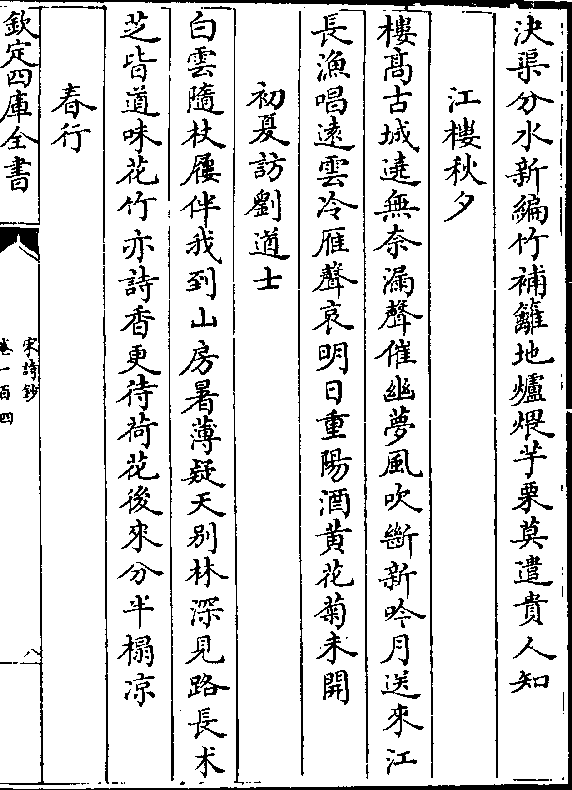 決渠分水新編竹補籬地爐煨芋栗莫遣貴人知
江樓秋夕
樓髙古城遶無奈漏聲催幽夢風吹斷新吟月送來江
長漁唱逺雲冷雁聲哀明日重陽酒黄花菊未開
初夏訪劉道士
白雲隨杖屨伴我到山房暑薄疑天别林深見路長术
芝皆道味花竹亦詩香更待荷花後來分半榻凉
春行
欽定四庫全書
宋詩鈔
卷一百四
八